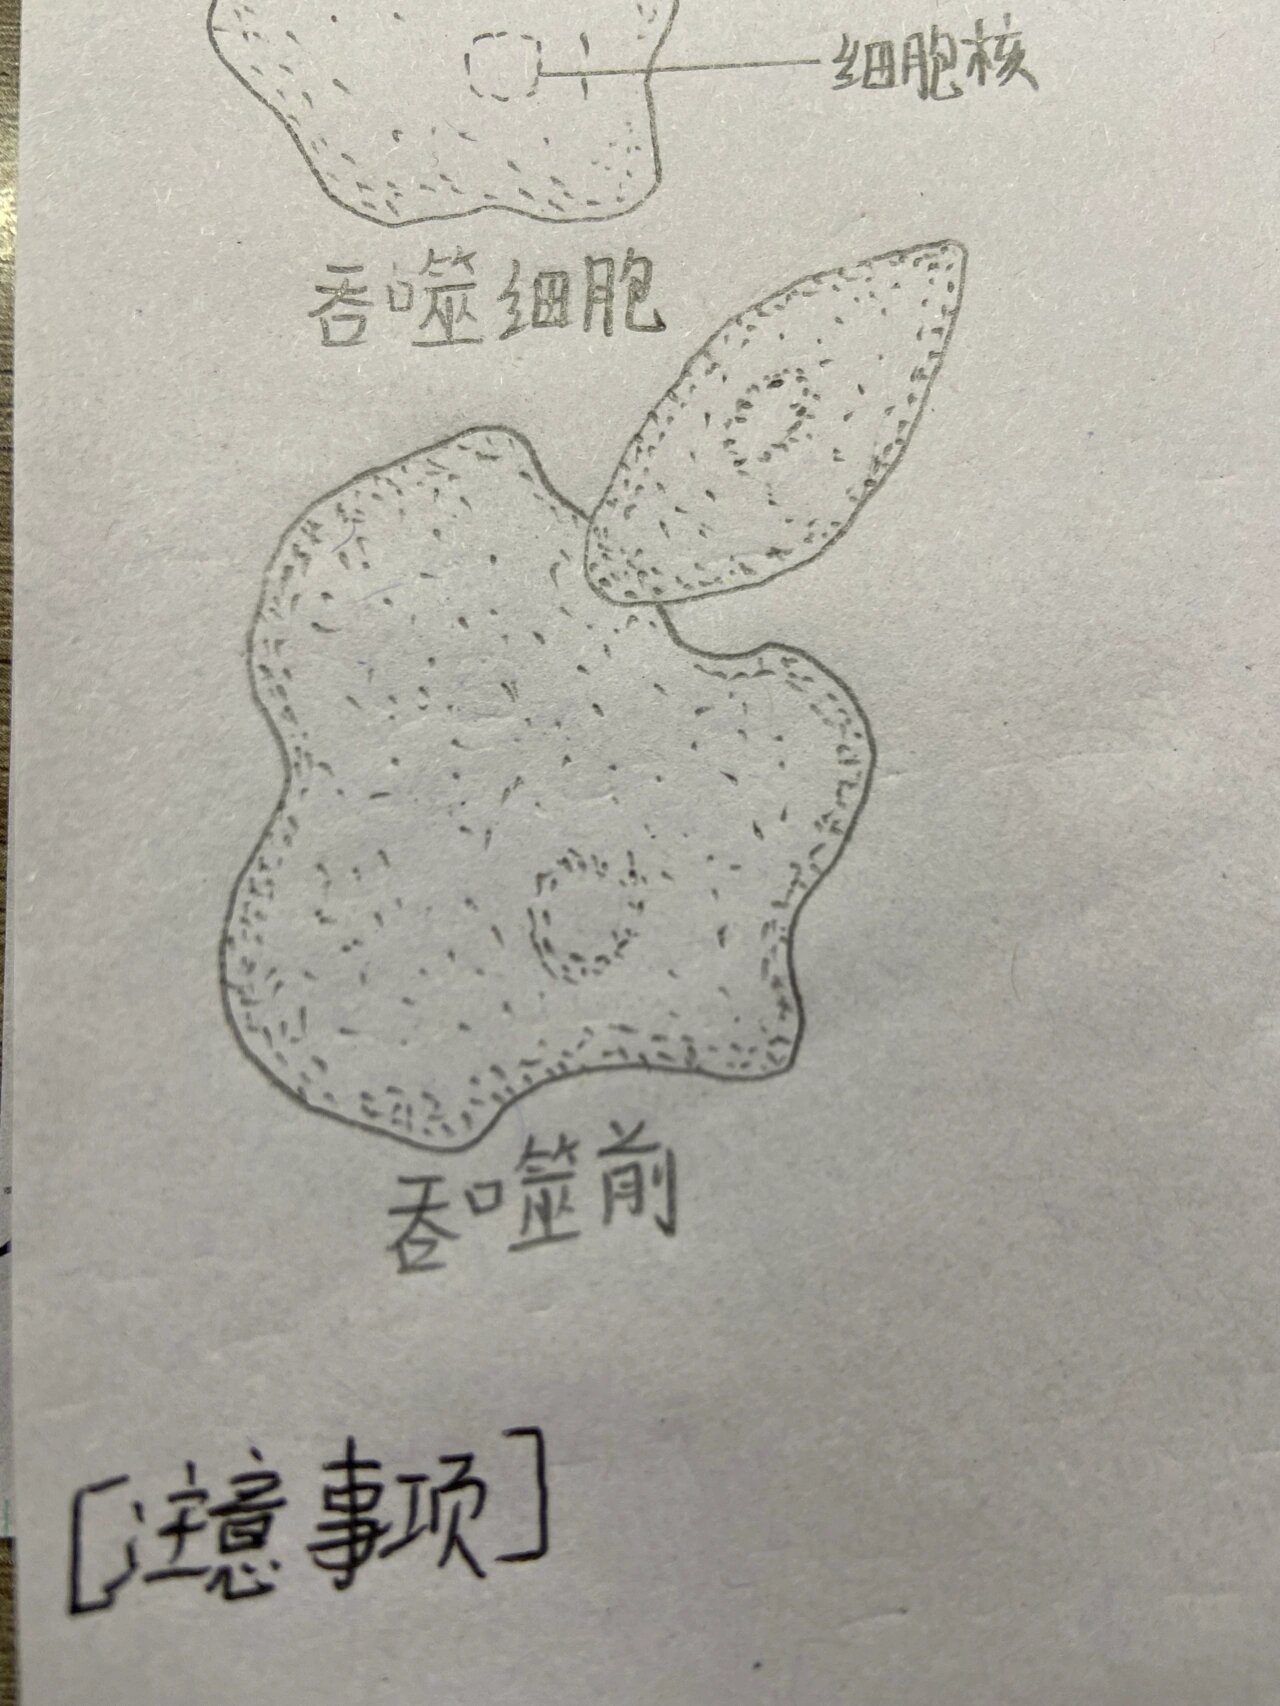 细胞核
吞噬细胞
吞噬前
[注意事项]